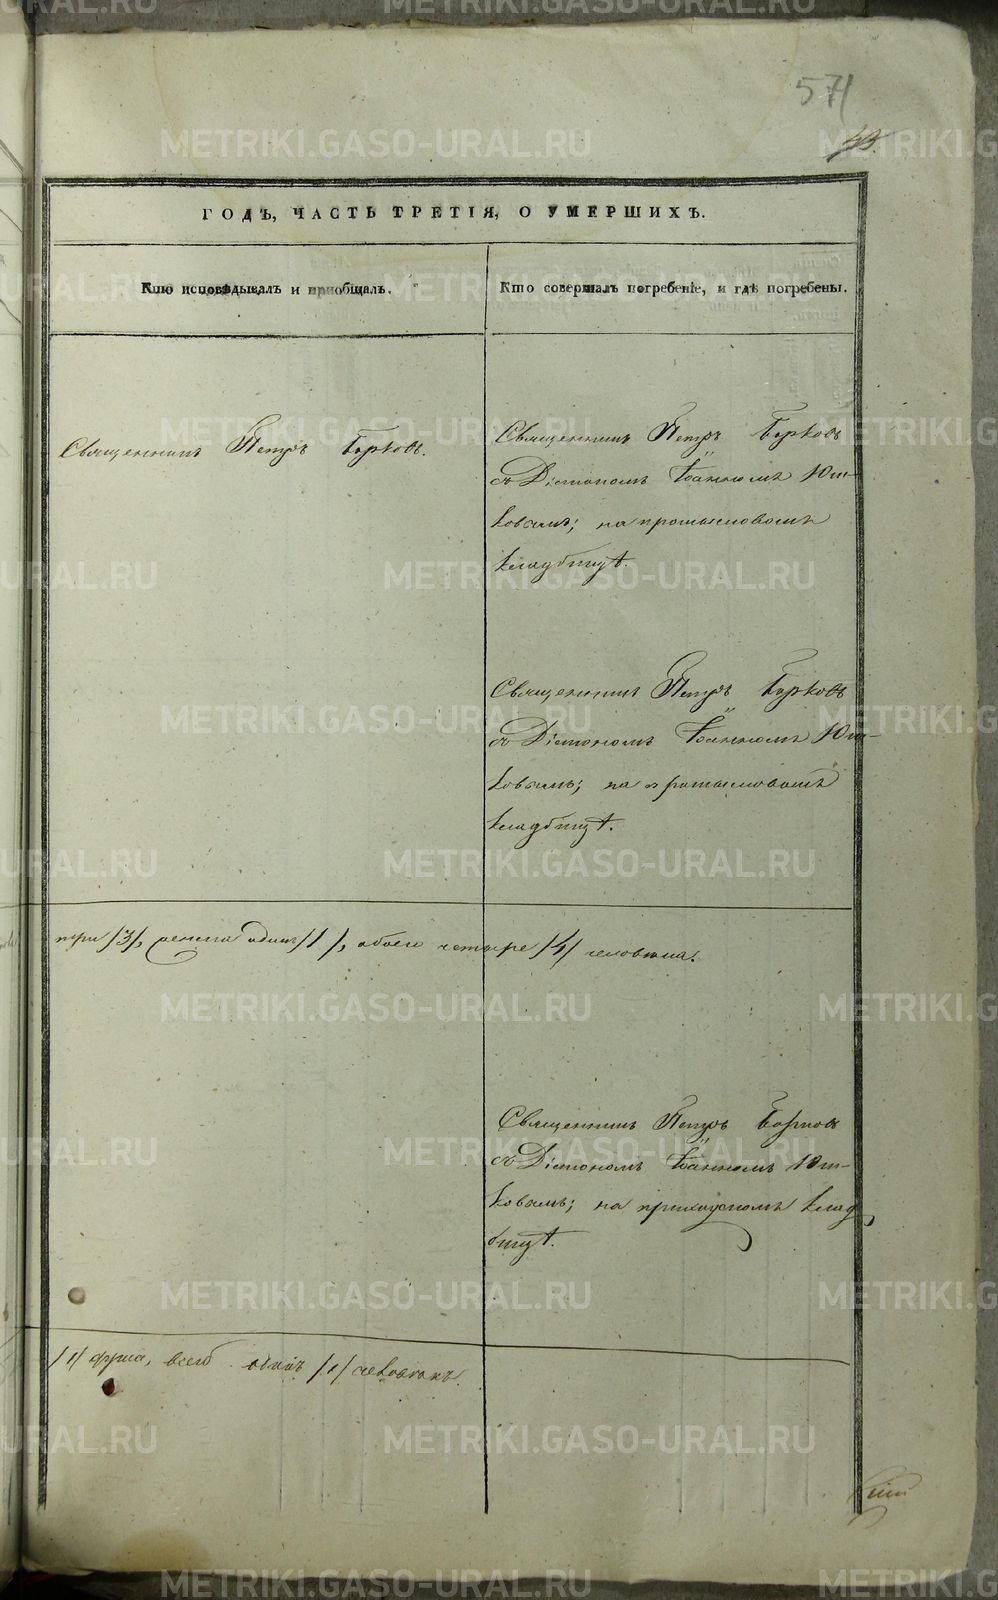 571
43.
ГОДЪ, ЧАСТЬ ТРЕТІЯ, О УМЕРШИХЪ.
Кто исповѣдывалъ и приобщалъ.
Кто совершалъ погребеніе, и гдѣ погребены.
Священникъ Петръ Борковъ.
Священникъ Петръ Борковъ
съ Діакономъ Іоанномъ Юш-
ковымъ; на промысловомъ
кладбищѣ.
Священникъ Петръ Борковъ
съ Діакономъ Іоанномъ Юш-
ковымъ; на промысловомъ
кладбищѣ.
три /3/, женска одинъ /1/, обоего четыре /4/ человѣка.
Священникъ Петръ Борковъ
съ Діакономъ Іоанномъ Юш-
ковымъ; на приходскомъ клад
бищѣ.
/1/ душа, всего одинъ /1/ человѣкъ.
METRIKI.GASO-URAL.RU